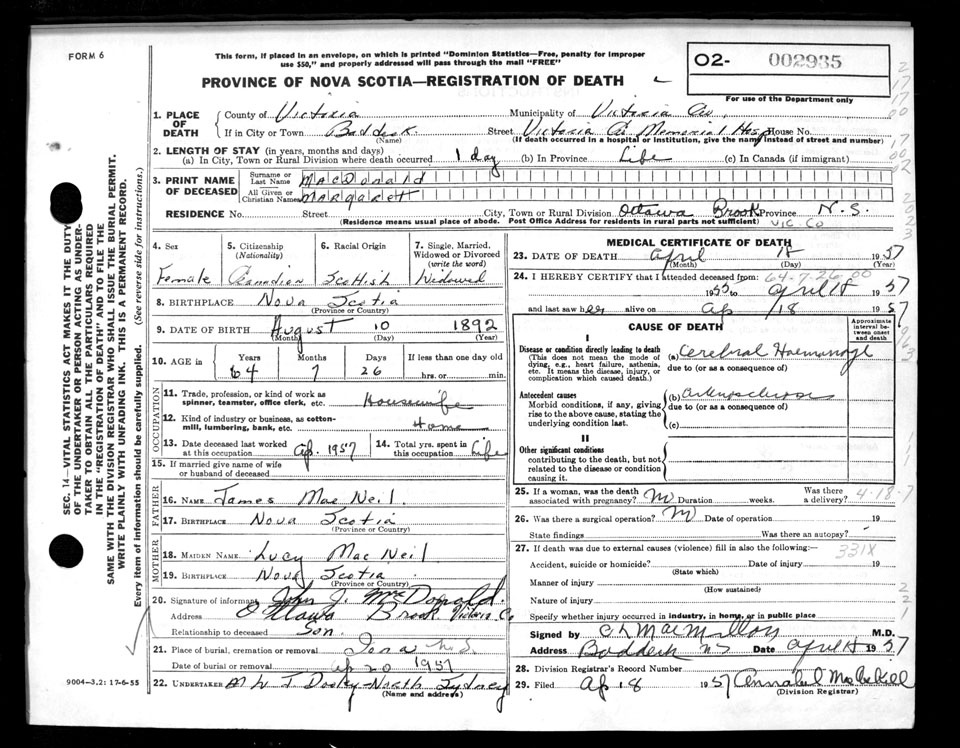 FORM 6
This form, if placed in an envelope, on which is printed "Dominion Statistics—Free, penalty for improper
use $50," and properly addressed will pass through the mail "FREE"
PROVINCE OF NOVA SCOTIA—REGISTRATION OF DEATH
02- 002935
For use of the Department only
1. PLACE OF DEATH
County of Victoria Municipality of Victoria Co,
If in City or Town Baddeck Street Victoria Co Memorial Hosp House No.
(Name) (If death occurred in a hospital or institution, give the name instead of street and number)
2. LENGTH OF STAY (in years, months and days)
(a) In City, Town or Rural Division where death occurred 1 day (b) In Province Life (c) In Canada (if immigrant)
3. PRINT NAME OF DECEASED
Surname or Last Name MacDonald
All Given or Christian Names Margarett
RESIDENCE No. Street City, Town or Rural Division Ottawa Brook Province N.S.
(Residence means usual place of abode. Post Office Address for residents in rural parts not sufficient) Vic. Co
4. Sex Female
5. Citizenship (Nationality) Canadian
6. Racial Origin Scottish
7. Single, Married, Widowed or Divorced (write the word) Widowed
8. BIRTHPLACE Nova Scotia
(Province or Country)
9. DATE OF BIRTH August 10 1892
(Month) (Day) (Year)
10. AGE in Years 64 Months 7 Days 26 If less than one day old hrs. or min.
OCCUPATION
11. Trade, profession, or kind of work as spinner, teamster, office clerk, etc. Housewife
12. Kind of industry or business, as cotton-mill, lumbering, bank, etc. Home
13. Date deceased last worked at this occupation Ap. 1957
14. Total yrs. spent in this occupation Life
15. If married give name of wife or husband of deceased
FATHER
16. NAME James Mac Neil
17. BIRTHPLACE Nova Scotia
(Province or Country)
MOTHER
18. MAIDEN NAME Lucy Mac Neil
19. BIRTHPLACE Nova Scotia
(Province or Country)
20. Signature of informant John J. McDonald
Address Ottawa Brook Victoria Co
Relationship to deceased Son.
21. Place of burial, cremation or removal Iona N.S.
Date of burial or removal Ap 20 1957
22. UNDERTAKER Dooley North Sydney
(Name and address)
9004-3.2: 17-6-55
MEDICAL CERTIFICATE OF DEATH
23. DATE OF DEATH April 18 1957
(Month) (Day) (Year)
24. I HEREBY CERTIFY that I attended deceased from: 64-7-26 00
1955 to April 18 1957
and last saw her alive on Ap /18 1957
CAUSE OF DEATH
Approximate interval between onset and death
I
Disease or condition directly leading to death
(This does not mean the mode of dying, e.g., heart failure, asthenia, etc. It means the disease, injury, or complication which caused death.)
(a) Cerebral Haemorrage
due to (or as a consequence of)
Antecedent causes
Morbid conditions, if any, giving rise to the above cause, stating the underlying condition last.
(b) Arteriosclerosis
due to (or as a consequence of)
(c)
II
Other significant conditions
contributing to the death, but not related to the disease or condition causing it.
25. If a woman, was the death associated with pregnancy? N Duration weeks. Was there a delivery? 4-18-7
26. Was there a surgical operation? N Date of operation 19
State findings Was there an autopsy?
27. If death was due to external causes (violence) fill in also the following:— 331X
Accident, suicide or homicide? Date of injury 19
(State which)
Manner of injury
(How sustained)
Nature of injury
Specify whether injury occurred in industry, in home, or in public place
Signed by C L MacMillan M.D.
Address Baddeck NS Date April 18 1957
28. Division Registrar's Record Number
29. Filed Ap 18 1957 Annabel
(Division Registrar)
SEC. 14—VITAL STATISTICS ACT MAKES IT THE DUTY
OF THE UNDERTAKER OR PERSON ACTING AS UNDER-
TAKER TO OBTAIN ALL THE PARTICULARS REQUIRED
IN THE "REGISTRATION OF DEATH" AND TO FILE THE
SAME WITH THE DIVISION REGISTRAR WHO SHALL ISSUE THE BURIAL PERMIT.
WRITE PLAINLY WITH UNFADING INK. THIS IS A PERMANENT RECORD.
Every item of information should be carefully supplied. (See reverse side for instructions.)